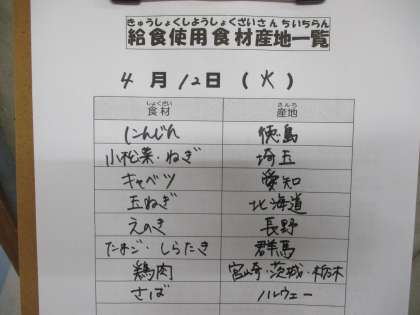 きゅうしょくしようしょくざいさんちいちらん
給食使用食材産地一覧
4月12日(火)
しょくざい さんち
食材 産地
にんじん 徳島
小松菜・ねぎ 埼玉
キャベツ 愛知
玉ねぎ 北海道
えのき 長野
たまご・しらたき 群馬
鶏肉 宮崎・茨城・栃木
さば ノルウェー